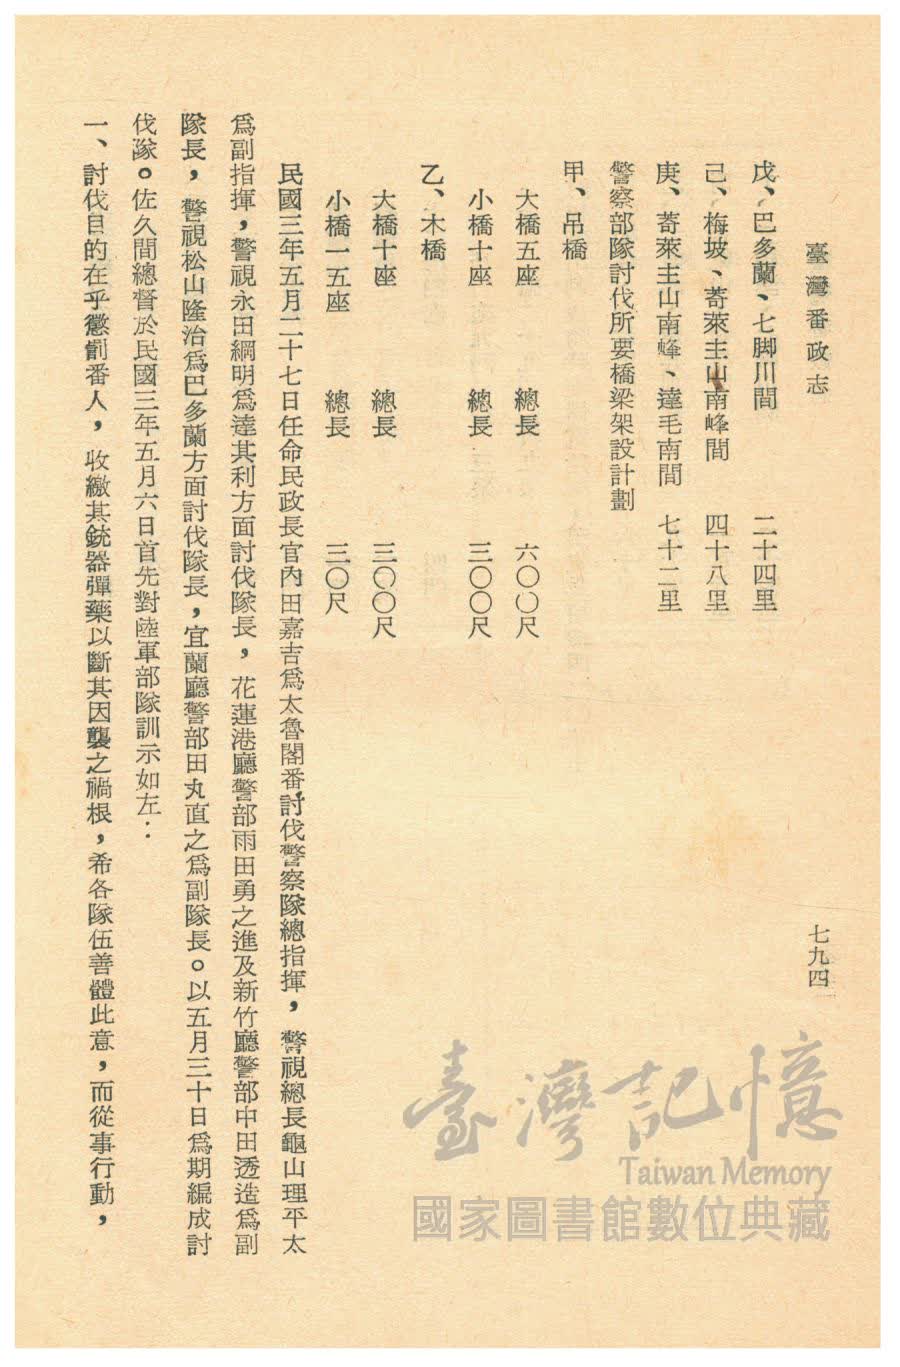 臺灣番政志
七九四
戊、巴多蘭、七脚川間 二十四里
己、梅坡、荅萊主山南峰間 四十八里
庚、荅萊主山南峰、達毛南間 七十二里
警察部隊討伐所要橋梁架設計劃
甲、吊橋
大橋五座 總長 六〇〇尺
小橋十座 總長 三〇〇尺
乙、木橋
大橋十座 總長 三〇〇尺
小橋一五座 總長 三〇尺
民國三年五月二十七日任命民政長官內田嘉吉爲太魯閣番討伐警察隊總指揮，警視總長龜山理平太
爲副指揮，警視永田綱明爲達其利方面討伐隊長，花蓮港廳警部雨田勇之進及新竹廳警部中田透造爲副
隊長，警視松山隆治爲巴多蘭方面討伐隊長，宜蘭廳警部田丸直之爲副隊長。以五月三十日爲期編成討
伐隊。佐久間總督於民國三年五月六日首先對陸軍部隊訓示如左：
一、討伐目的在乎懲罰番人，收繳其銃器彈藥以斷其因襲之禍根，希各隊伍善體此意，而從事行動，
臺灣記憶
Taiwan Memory
國家圖書館數位典藏